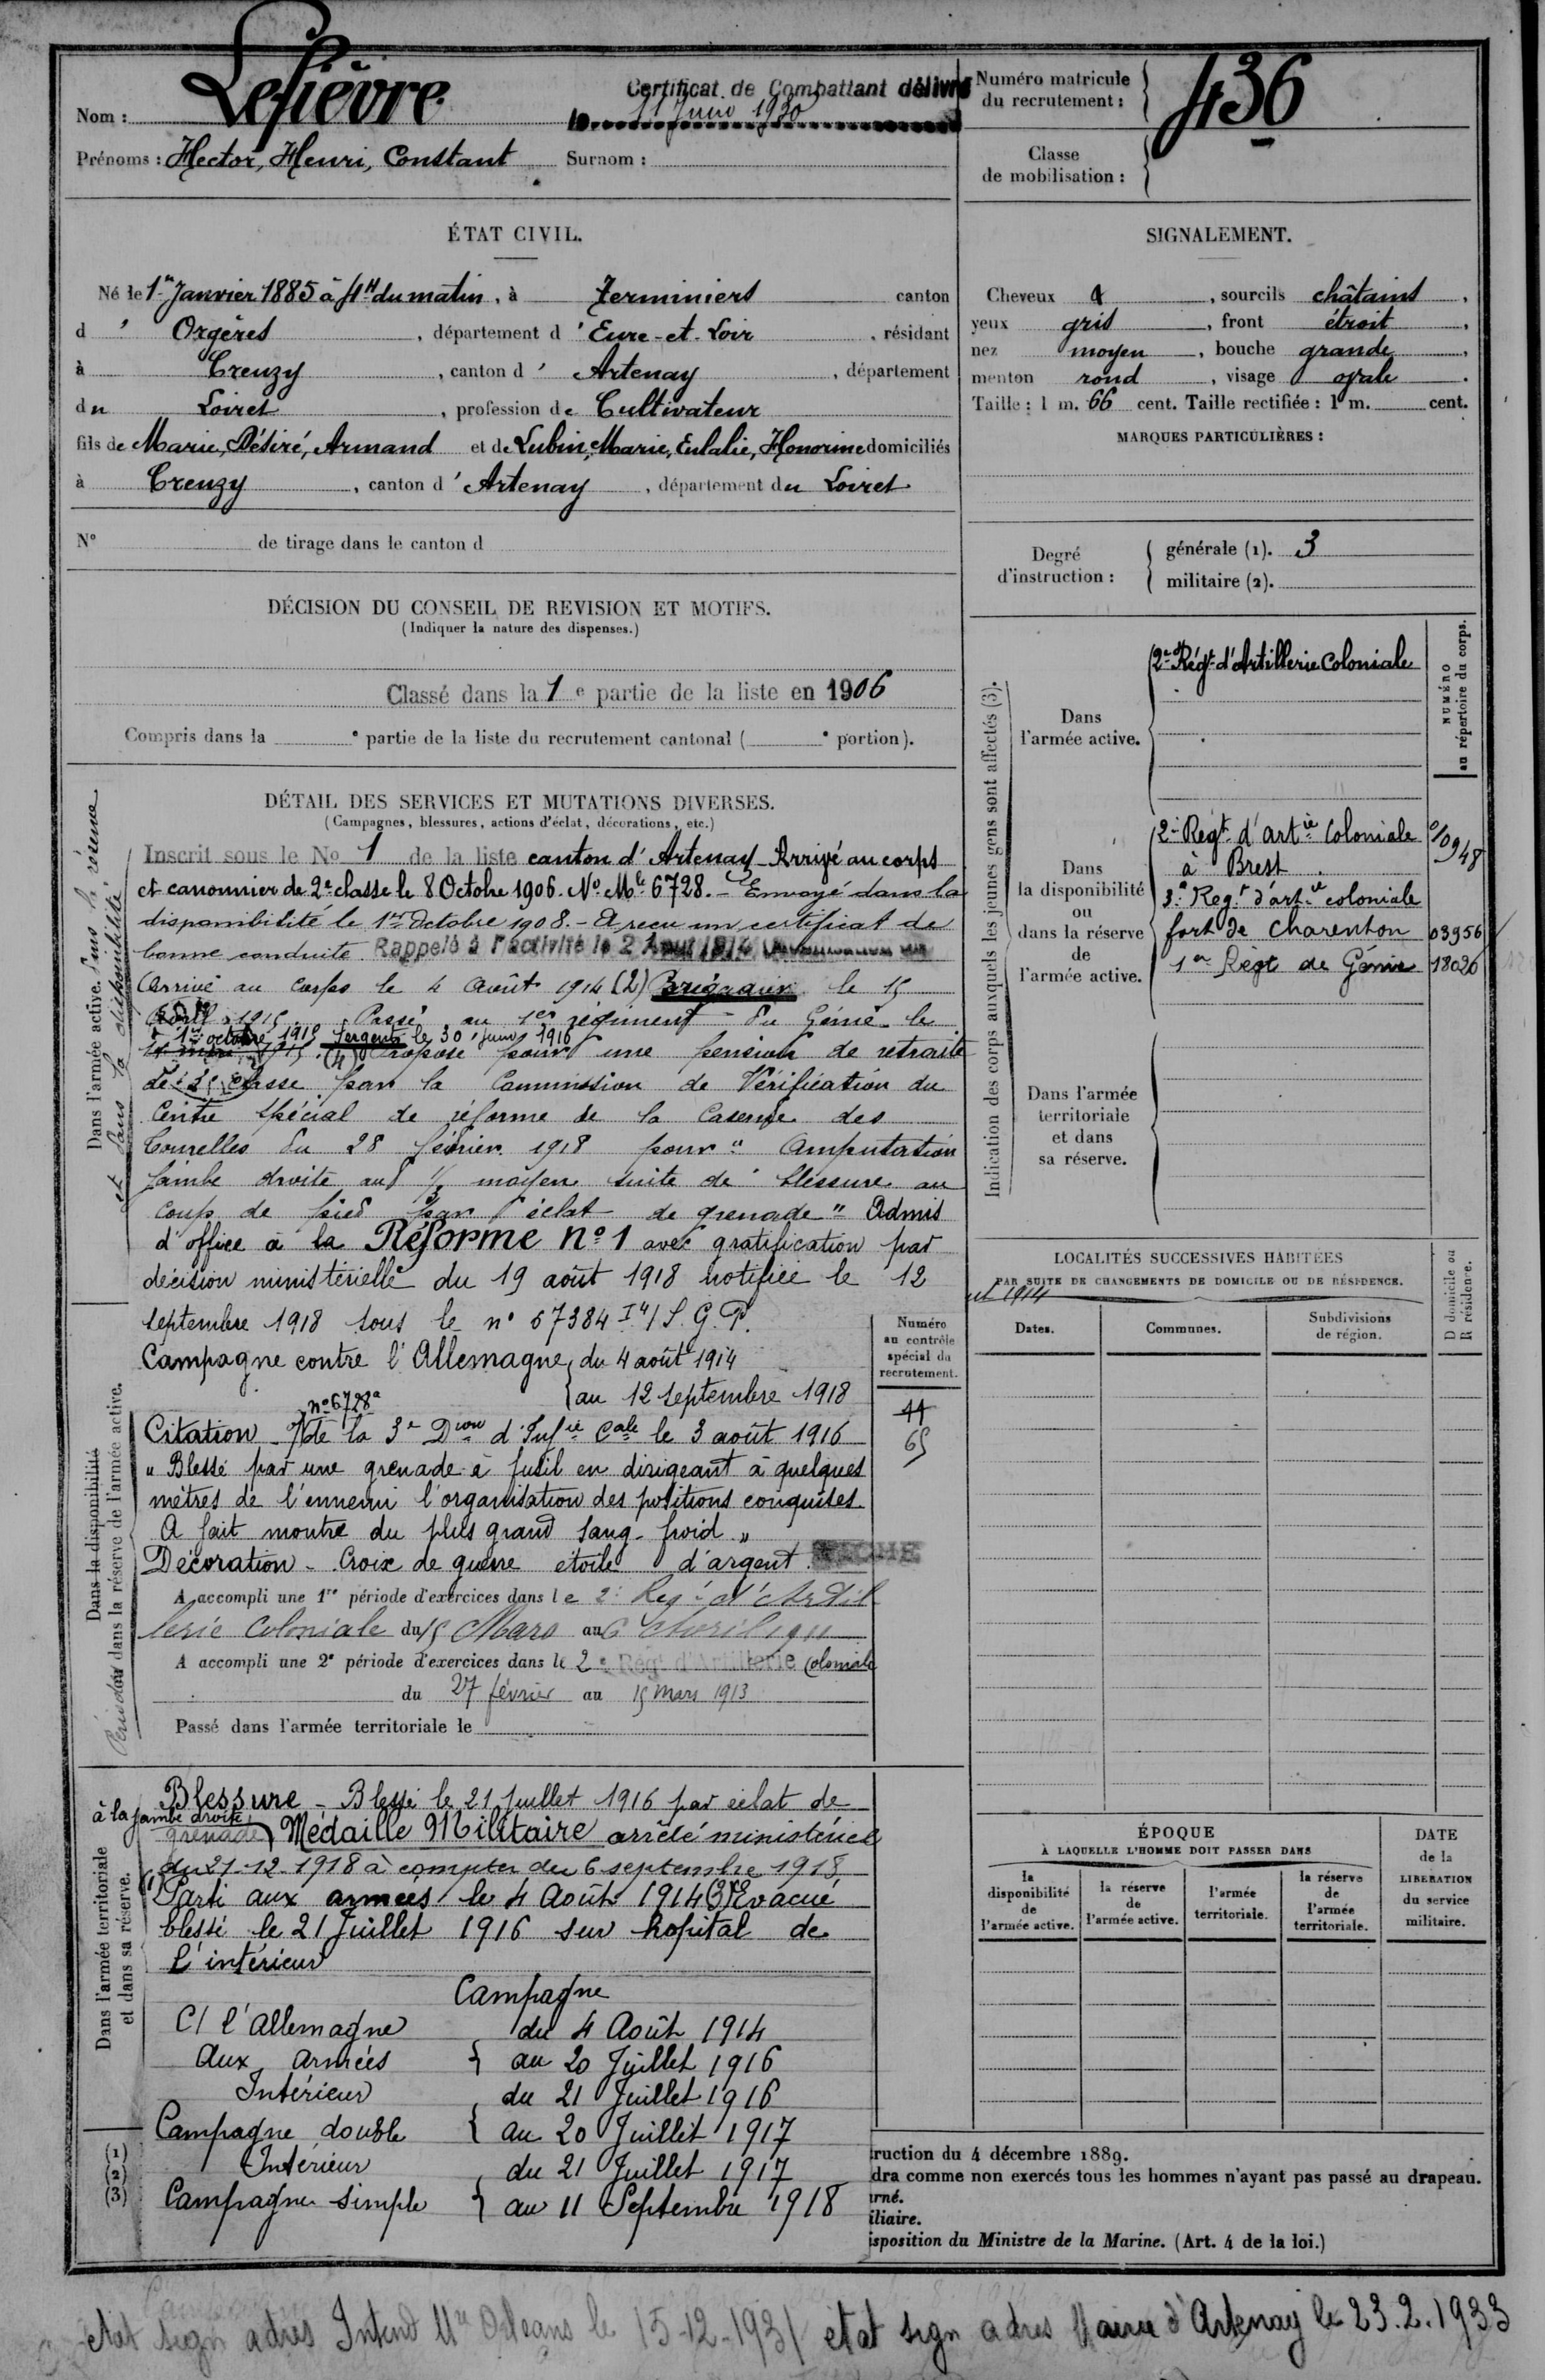 Nom : Lefièvre
Certificat de Combattant délivré
le 11 Juin 1930
Prénoms : Hector, Henri, Constant Surnom :
Numéro matricule du recrutement : 436
Classe de mobilisation :
ÉTAT CIVIL.
Né le 1er Janvier 1885 à 4H du matin, à Terminiers canton
d' Orgères, département d'Eure-et-Loir, résidant
à Creuzy, canton d' Artenay, département
du Loiret, profession de Cultivateur
fils de Marie, Désiré, Armand et de Lubin, Marie, Eulalie, Honorine domiciliés
à Creuzy, canton d'Artenay, département du Loiret
N° de tirage dans le canton d
SIGNALEMENT.
Cheveux &, sourcils châtains,
yeux gris, front étroit,
nez moyen, bouche grande,
menton rond, visage ovale.
Taille : 1 m. 66 cent. Taille rectifiée : 1 m. cent.
MARQUES PARTICULIÈRES :
Degré d'instruction :
générale (1). 3
militaire (2).
DÉCISION DU CONSEIL DE REVISION ET MOTIFS.
(Indiquer la nature des dispenses.)
Classé dans la 1e partie de la liste en 1906
Compris dans la e partie de la liste du recrutement cantonal ( e portion).
DÉTAIL DES SERVICES ET MUTATIONS DIVERSES.
(Campagnes, blessures, actions d'éclat, décorations, etc.)
Dans l'armée active.
et dans la disponibilité
Inscrit sous le No 1 de la liste canton d'Artenay - Arrivé au corps
et canonnier de 2e classe le 8 Octobre 1906. No Mle 6728. - Envoyé dans la
disponibilité le 1er Octobre 1908. - A reçu un certificat de
bonne conduite. Rappelé à l'activité le 2 Aout 1914
Arrivé au Corps le 4 Août 1914 (2) Brigadier le 15
Avril 1915. Passé au 1er régiment du Génie le
1er octobre 1915 Sergent le 30 juin 1916
(4) Proposé pour une pension de retraite
de classe par la Commission de Vérification du
Centre Spécial de réforme de la Caserne des
Tourelles du 28 février 1918 pour "Amputation
jambe droite au 1/3 moyen suite de blessure au
coup de pied par éclat de grenade" Admis
d'office à la Réforme n°1 avec gratification par
décision ministérielle du 19 août 1918 notifiée le 12
septembre 1918 sous le n° 67384 I4/S.G.P.
Campagne contre l'Allemagne du 4 août 1914
au 12 septembre 1918
n°6728a
Citation de la 3e Dion d'Infie Cale le 3 août 1916
"Blessé par une grenade à fusil en dirigeant à quelques
mètres de l'ennemi l'organisation des positions conquises.
A fait montre du plus grand sang-froid"
Décoration - Croix de guerre étoile d'argent.
A accompli une 1re période d'exercices dans le 2e Regt d'Artil
lerie Coloniale du 15 Mars au 6 Avril 1911
A accompli une 2e période d'exercices dans le 2e Régt d'Artillerie Coloniale
du 27 février au 15 mars 1913
Passé dans l'armée territoriale le
Dans la disponibilité
Périodes dans la réserve de l'armée active.
Numéro au contrôle spécial du recrutement.
44
65
Dans l'armée territoriale et dans sa réserve.
Blessure - Blessé le 21 juillet 1916 par éclat de
à la jambe droite
grenade Médaille Militaire arrêté ministériel
du 21-12-1918 à compter du 6 septembre 1918
(1) Parti aux armées le 4 Août 1914 (3) Evacué
blessé le 21 Juillet 1916 sur hopital de
l'intérieur
Campagne
C/ l'Allemagne du 4 Août 1914
Aux armées au 20 Juillet 1916
Intérieur du 21 Juillet 1916
Campagne double au 20 Juillet 1917
Intérieur du 21 Juillet 1917
Campagne simple au 11 Septembre 1918
(1)
(2)
(3)
Indication des corps auxquels les jeunes gens sont affectés (3).
NUMÉRO au répertoire du corps.
Dans l'armée active.
2e Régt d'Artillerie Coloniale
Dans la disponibilité ou dans la réserve de l'armée active.
2e Regt d'artie Coloniale
à Brest 0/0948
3e Regt d'artie coloniale
fort de Charenton 03956
1er Règt de Génie 18026
Dans l'armée territoriale et dans sa réserve.
LOCALITÉS SUCCESSIVES HABITÉES
PAR SUITE DE CHANGEMENTS DE DOMICILE OU DE RÉSIDENCE.
Dates. Communes. Subdivisions de région. D domicile ou R résidence.
ÉPOQUE
À LAQUELLE L'HOMME DOIT PASSER DANS
la disponibilité de l'armée active.
la réserve de l'armée active.
l'armée territoriale.
la réserve de l'armée territoriale.
DATE de la LIBÉRATION du service militaire.
ruction du 4 décembre 1889.
dra comme non exercés tous les hommes n'ayant pas passé au drapeau.
rné.
iliaire.
isposition du Ministre de la Marine. (Art. 4 de la loi.)
etat sign adres Intend Mre Orleans le 15-12-1931 etat sign adres Mairie d'Artenay le 23.2.1933